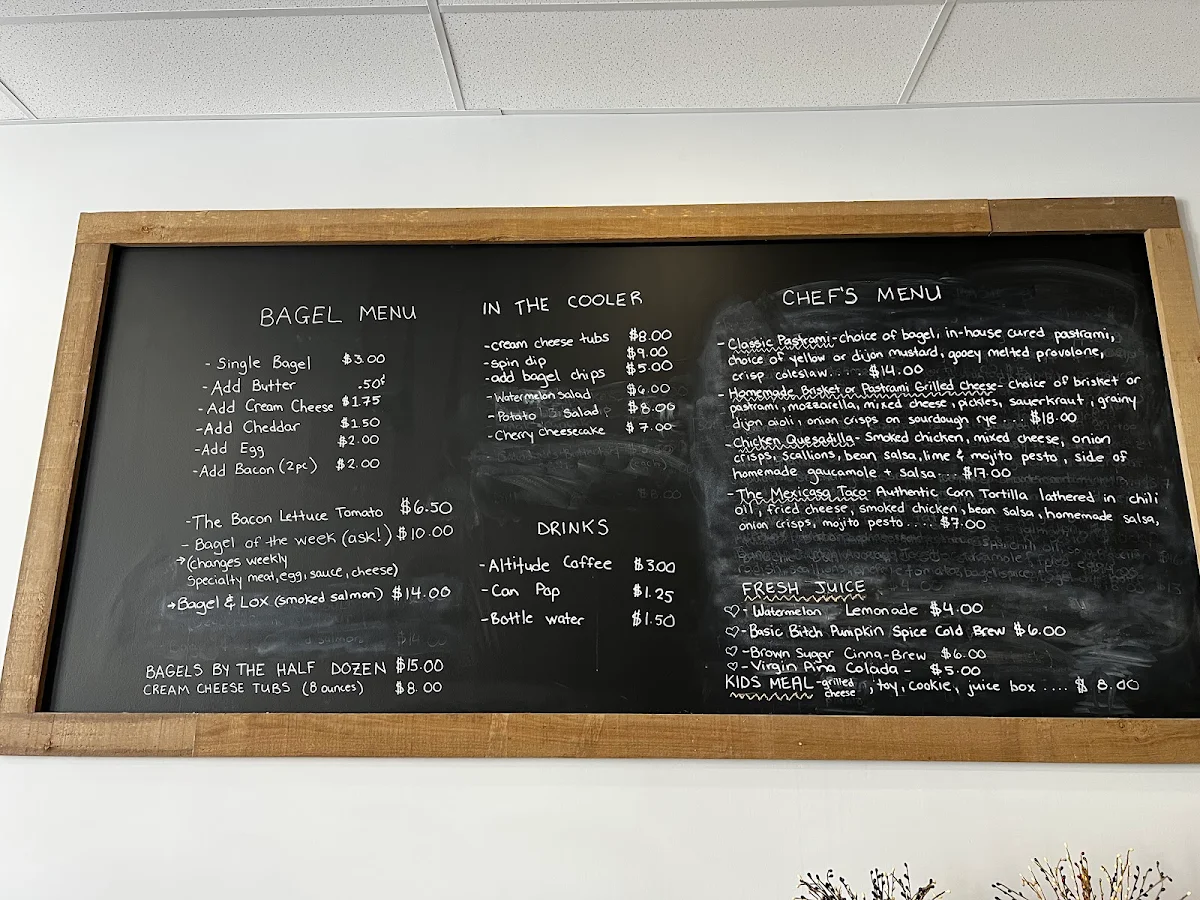 BAGEL MENU
- Single Bagel $3.00
- Add Butter .50¢
- Add Cream Cheese $1.75
- Add Cheddar $1.50
- Add Egg $2.00
- Add Bacon (2pc) $2.00
- The Bacon Lettuce Tomato $6.50
- Bagel of the week (ask!) $10.00
→ (changes weekly
Specialty meat, egg, sauce, cheese)
→ Bagel & Lox (smoked salmon) $14.00
BAGELS BY THE HALF DOZEN $15.00
CREAM CHEESE TUBS (8 ounces) $8.00
IN THE COOLER
- cream cheese tubs $8.00
- spin dip $9.00
- add bagel chips $5.00
- Watermelon Salad $6.00
- Potato Salad $8.00
- Cherry cheesecake $7.00
DRINKS
- Altitude Coffee $3.00
- Can Pop $1.25
- Bottle water $1.50
CHEF'S MENU
- Classic Pastrami - choice of bagel, in-house cured pastrami,
choice of yellow or dijon mustard, gooey melted provolone,
crisp coleslaw.... $14.00
- Homemade Brisket or Pastrami Grilled Cheese - choice of brisket or
pastrami, mozzarella, mixed cheese, pickles, sauerkraut, grainy
dijon aioli, onion crisps on sourdough rye ... $18.00
- Chicken Quesadilla - Smoked chicken, mixed cheese, onion
crisps, scallions, bean salsa, lime & mojito pesto, side of
homemade gaucamole + salsa... $17.00
- The Mexicasa Taco - Authentic Corn Tortilla lathered in chili
oil, fried cheese, smoked chicken, bean salsa, homemade salsa,
onion crisps, mojito pesto.... $7.00
FRESH JUICE
♡ - Watermelon Lemonade $4.00
♡ - Basic Bitch Pumpkin Spice Cold Brew $6.00
♡ - Brown Sugar Cinna-Brew $6.00
♡ - Virgin Piña Colada - $5.00
KIDS MEAL - grilled cheese, toy, cookie, juice box .... $8.00